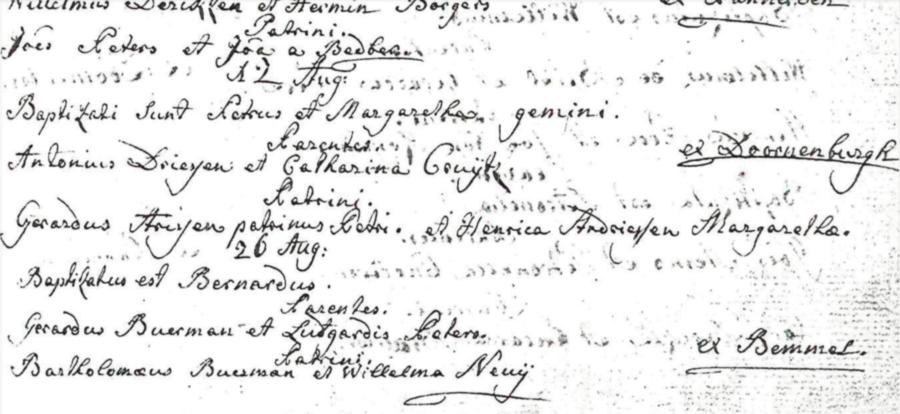 Willelmus Derissen et Hermin Borgers
Patrini.
Joes Peters et Joa a Bedber.
12 Aug:
Baptizati sunt Petrus et Margaretha gemini.
Parentes.
Antonius Driessen et Catharina Cruijk ex Doornenburgh
Patrini.
Gerardus Arissen patrinus Petri. et Henrica Andriessen Margarethæ.
26 Aug:
Baptizatus est Bernardus.
Parentes.
Gerardus Buerman et Ludgardis Peters. ex Bemmel.
Patrini.
Bartholomæus Buerman et Willelma Neuij